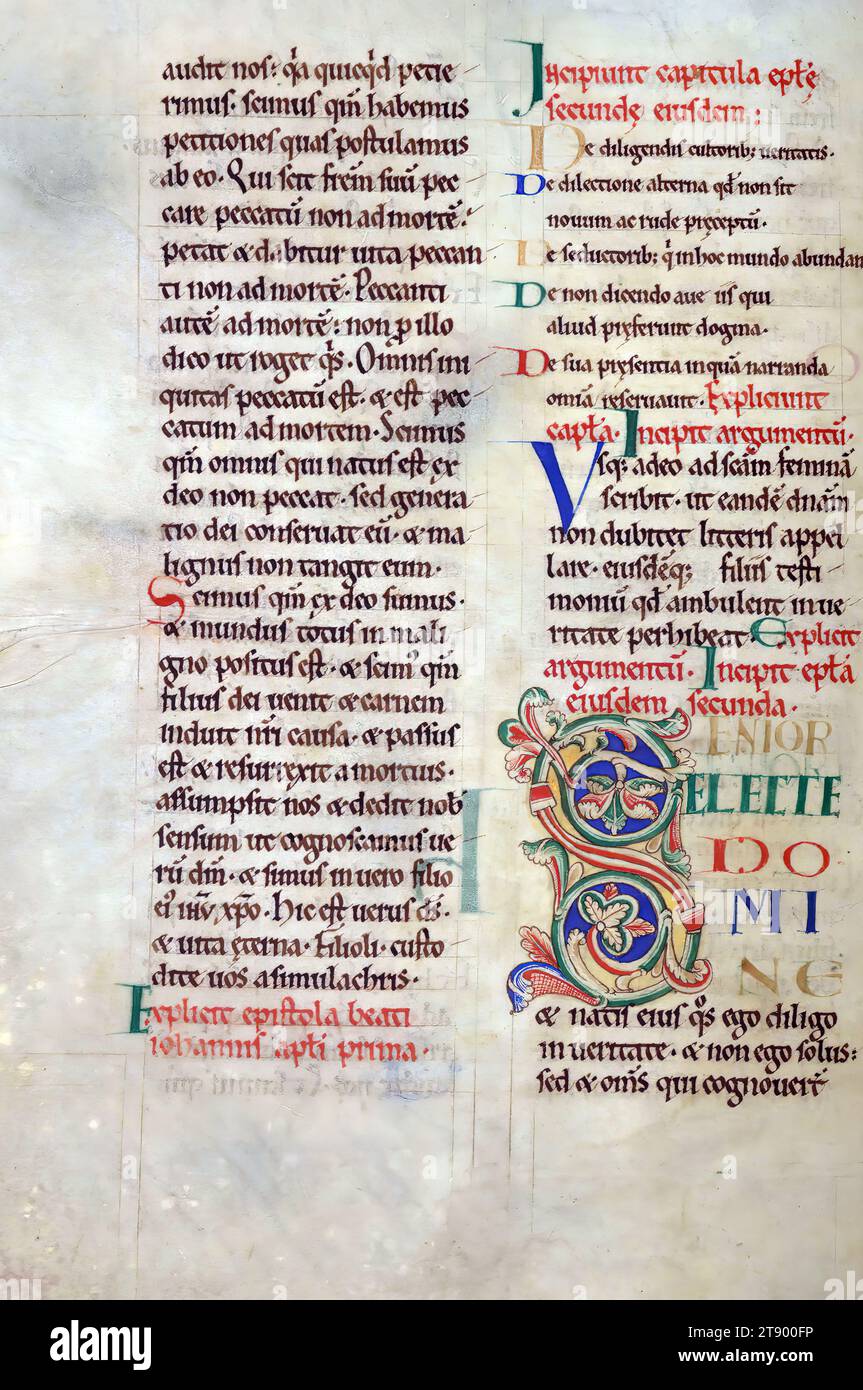 audit nos: q̄a quicq̄d petie
rimus. scimus qm̄ habemus
petitiones quas postulamus
ab eo. Qui scit frem̄ suū pec
care peccatū non ad mortē.
petat & dabitur uita peccan
ti non ad mortē. Peccanti
autē ad mortē: non ꝓ illo
dico ut roget q̄s. Omnis ini
quitas peccatū est. & est pec
catum ad mortem. Scimus
qm̄ omnis qui natus est ex
deo non peccat. sed genera
tio dei conseruat eū. & ma
lignus non tangit eum.
Scimus qm̄ ex deo simus.
& mundus totus in mali
gno positus est. & scim᷒ qm̄
filius dei uenit & carnem
induit nr̄i causa. & passus
est & resurrexit a mortuis.
assumpsit nos & dedit nob᷒
sensum ut cognoscamus ue
rū dm̄. & simus in uero filio
ei᷒ ih̄u xp̄o. Hic est uerus d̄s.
& uita ęterna. Filioli. custo
dite uos a simulachris.
Explicit epistola beati
iohannis apl̄i prima.
Incipiunt capitula epl̄ę
secundę eiusdem:
De diligendis cultorib; ueritatis.
De dilectione alterna qd̄ non sit
nouum ac rude pręceptū.
De seductorib; q̄ in hoc mundo abundan
De non dicendo aue iis qui
aliud pręferunt dogma.
De sua presentia in quā narranda
omīa reseruauit. Expliciunt
capl̄a. Incipit argumentū.
Vsq; adeo ad scām feminā
scribit. ut eandē dnam̄
non dubitet litteris appel
lare. eiusdēq; filiis testi
moniū qd̄ ambulent in ue
ritate perhibeat. Explicit
argumentū. Incipit epl̄a
eiusdem secunda.
SENIOR
ELECTE
DO
MI
NE
& natis eius q̊s ego diligo
in ueritate. & non ego solus:
sed & om̄s qui cognouer̄t
alamy
Image ID: 2T900FP
www.alamy.com